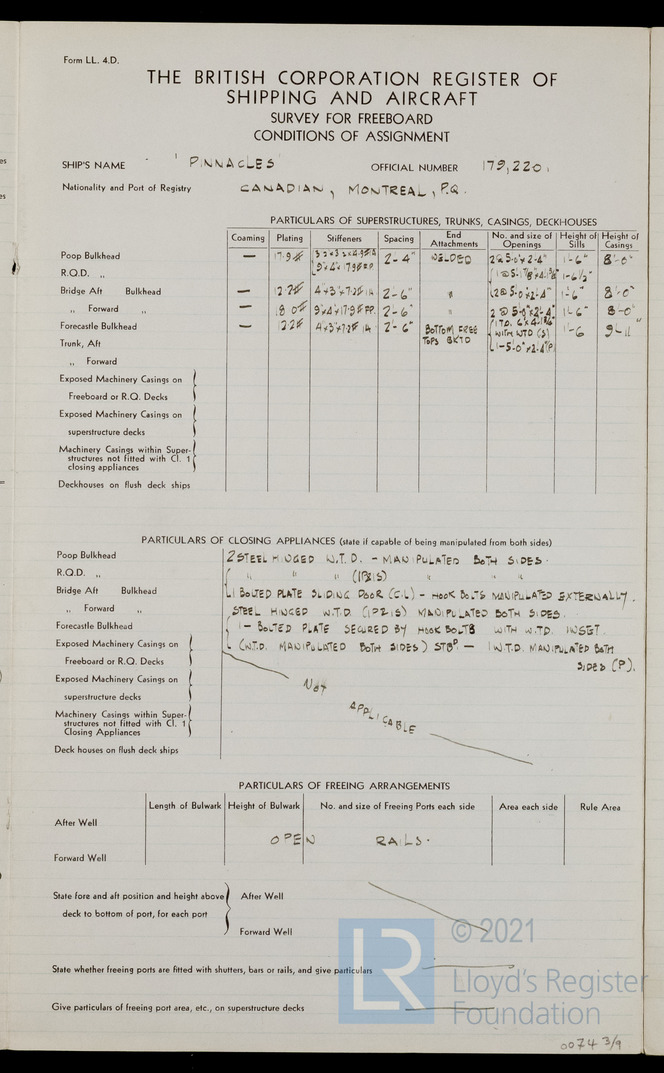 Form LL. 4.D.
THE BRITISH CORPORATION REGISTER OF
SHIPPING AND AIRCRAFT
SURVEY FOR FREEBOARD
CONDITIONS OF ASSIGNMENT
SHIP'S NAME 'PINNACLES' OFFICIAL NUMBER 179,220.
Nationality and Port of Registry CANADIAN, MONTREAL, P.Q.
PARTICULARS OF SUPERSTRUCTURES, TRUNKS, CASINGS, DECKHOUSES
Coaming Plating Stiffeners Spacing End Attachments No. and size of Openings Height of Sills Height of Casings
Poop Bulkhead — 17·9# 2'-4" WELDED 2@5'-0"x2'-4" 1'-6" 8'-0"
R.Q.D. „ 1'-6½"
Bridge Aft Bulkhead — 12·2# 4"x3"x7·2# 1A 2'-6" " 2@5'-0"x2'-4" 1'-6" 8'-0"
„ Forward „ — 18·0# 9"x4"x17·9# FP. 2'-6" " 2@5'-0"x2'-4" 1'-6" 8'-0"
Forecastle Bulkhead — 12·2# 4"x3"x7·2# 1A 2'-6" BOTTOM FREE TOPS BKTD WITH WTD (S) 1-5'-0"x2'-4" P. 1'-6 9'-11"
Trunk, Aft
„ Forward
Exposed Machinery Casings on
Freeboard or R.Q. Decks
Exposed Machinery Casings on
superstructure decks
Machinery Casings within Super-
structures not fitted with Cl. 1
closing appliances
Deckhouses on flush deck ships
PARTICULARS OF CLOSING APPLIANCES (state if capable of being manipulated from both sides)
Poop Bulkhead 2 STEEL HINGED W.T.D. - MANIPULATED BOTH SIDES.
R.Q.D. „ " " " (1P&1S) " "
Bridge Aft Bulkhead 1 BOLTED PLATE SLIDING DOOR (C.L) - HOOK BOLTS MANIPULATED EXTERNALLY.
„ Forward „ STEEL HINGED W.T.D. (1P&1S) MANIPULATED BOTH SIDES.
Forecastle Bulkhead 1 - BOLTED PLATE SECURED BY HOOK BOLTS WITH W.T.D. INSET.
Exposed Machinery Casings on (W.T.D. MANIPULATED BOTH SIDES) STBD - 1 W.T.D. MANIPULATED BOTH
Freeboard or R.Q. Decks SIDES (P).
Exposed Machinery Casings on NOT
superstructure decks
Machinery Casings within Super-
structures not fitted with Cl. 1 APPLICABLE
Closing Appliances
Deck houses on flush deck ships
PARTICULARS OF FREEING ARRANGEMENTS
Length of Bulwark Height of Bulwark No. and size of Freeing Ports each side Area each side Rule Area
After Well
OPEN RAILS.
Forward Well
State fore and aft position and height above After Well
deck to bottom of port, for each port
Forward Well
State whether freeing ports are fitted with shutters, bars or rails, and give particulars
Give particulars of freeing port area, etc., on superstructure decks
LR © 2021
Lloyd's Register
Foundation
0074 3/9